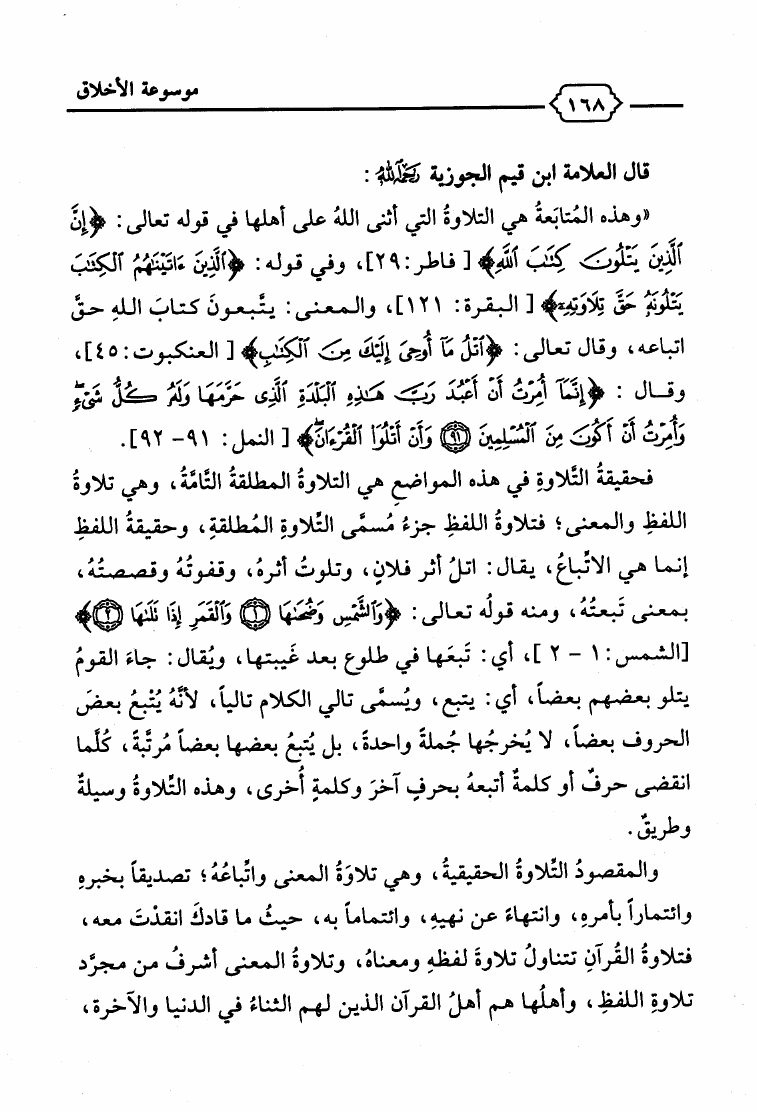 موسوعة الأخلاق
١٦٨
قال العلامة ابن قيم الجوزية رَحِمَهُ اللهُ :
«وهذه المُتابَعةُ هي التلاوةُ التي أثنى اللهُ على أهلها في قوله تعالى: ﴿إِنَّ
ٱلَّذِينَ يَتْلُونَ كِتَٰبَ ٱللَّهِ﴾ [ فاطر: ٢٩]، وفي قوله: ﴿ٱلَّذِينَ ءَاتَيْنَٰهُمُ ٱلْكِتَٰبَ
يَتْلُونَهُۥ حَقَّ تِلَاوَتِهِۦ﴾ [ البقرة: ١٢١]، والمعنى: يتَّبعونَ كتابَ اللهِ حقَّ
اتباعه، وقال تعالى: ﴿ٱتْلُ مَآ أُوحِىَ إِلَيْكَ مِنَ ٱلْكِتَٰبِ﴾ [ العنكبوت: ٤٥]،
وقال : ﴿إِنَّمَآ أُمِرْتُ أَنْ أَعْبُدَ رَبَّ هَٰذِهِ ٱلْبَلْدَةِ ٱلَّذِى حَرَّمَهَا وَلَهُۥ كُلُّ شَىْءٍۖ
وَأُمِرْتُ أَنْ أَكُونَ مِنَ ٱلْمُسْلِمِينَ ۝٩١ وَأَنْ أَتْلُوَا۟ ٱلْقُرْءَانَۖ﴾ [ النمل: ٩١- ٩٢].
فحقيقةُ التِّلاوةِ في هذه المواضع هي التلاوةُ المطلقةُ التَّامَّةُ، وهي تلاوةُ
اللفظِ والمعنى؛ فتلاوةُ اللفظِ جزءُ مُسمَّى التِّلاوةِ المُطلقةِ، وحقيقةُ اللفظِ
إنما هي الاتِّباعُ، يقال: اتلُ أثر فلانٍ، وتلوتُ أثرهُ، وقفوتُهُ وقصصتُهُ،
بمعنى تَبعتُهُ، ومنه قولُه تعالى: ﴿وَٱلشَّمْسِ وَضُحَىٰهَا ۝١ وَٱلْقَمَرِ إِذَا تَلَىٰهَا ۝٢﴾
[الشمس: ١ - ٢ ]، أي: تَبعَها في طلوع بعد غَيبتها، ويُقال: جاءَ القومُ
يتلو بعضهم بعضاً، أي: يتبع، ويُسمَّى تالي الكلام تالياً، لأنَّهُ يُتْبعُ بعضَ
الحروف بعضاً، لا يُخرجُها جُملةً واحدةً، بل يُتبعُ بعضها بعضاً مُرتَّبةً، كُلَّما
انقضى حرفٌ أو كلمةٌ أتبعهُ بحرفٍ آخرَ وكلمةٍ أُخرى، وهذه التِّلاوةُ وسيلةٌ
وطريقٌ.
والمقصودُ التِّلاوةُ الحقيقيةُ، وهي تلاوَةُ المعنى واتِّباعُهُ؛ تصديقاً بخبرهِ
وائتماراً بأمرهِ، وانتهاءً عن نهيهِ، وائتماماً به، حيثُ ما قادكَ انقدْتَ معه،
فتلاوةُ القُرآنِ تتناولُ تلاوةَ لفظهِ ومعناهُ، وتلاوةُ المعنى أشرفُ من مجرَّد
تلاوةِ اللفظِ، وأهلُها هم أهلُ القرآن الذين لهم الثناءُ في الدنيا والآخرة،